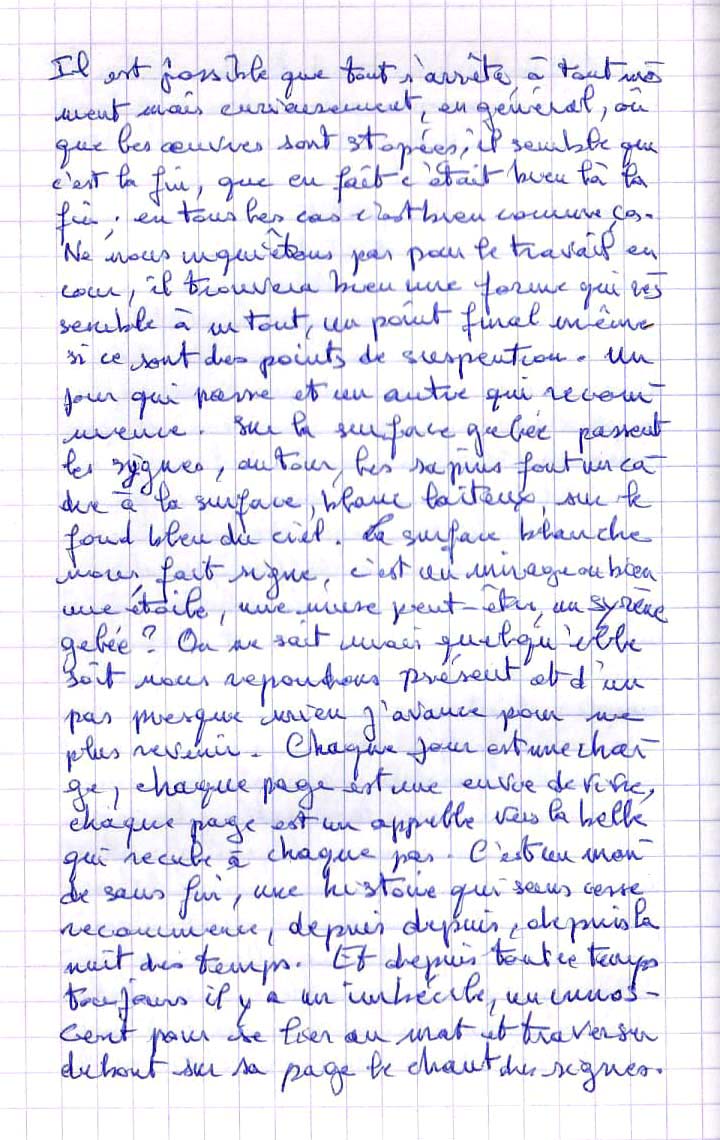 Il est possible que tout s'arrête, à tout mo
ment mais curieusement, en général, où
que les œuvres sont stopées, il semble que
c'est la fin, que en fait c'était bien là la
fin, en tous les cas c'est bien comme ça.
Ne nous inquiêtons pas pour le travail en
cour, il trouvera bien une forme qui res
semble à un tout, un point final même
si ce sont des points de suspention. Un
jour qui passe et un autre qui recom-
mence. Sur la surface gelée passent
les sygnes, autour, les sapins font un ca
dre à la surface, blanc laiteux, sur le
fond bleu du ciel. La surface blanche
nous fait signe, c'est un mirage ou bien
une étoile, une muse peut-être, un syrène
gelée? On ne sait mais quelqu'elle
soit nous repondons présent et d'un
pas presque mien j'avance pour ne
plus revenir. Chaque jour est une char-
ge, chaque page est une envie de vivre,
chaque page est un appelle vers la belle
qui recule à chaque pas. C'est un mon-
de sans fin, une histoire qui sans cesse
recommence, depuis depuis, depuis la
nuit des temps. Et depuis tout ce temps
toujours il y a un imbécile, un innos-
cent pour se lier au mat et traverser
debout sur sa page le chant des signes.